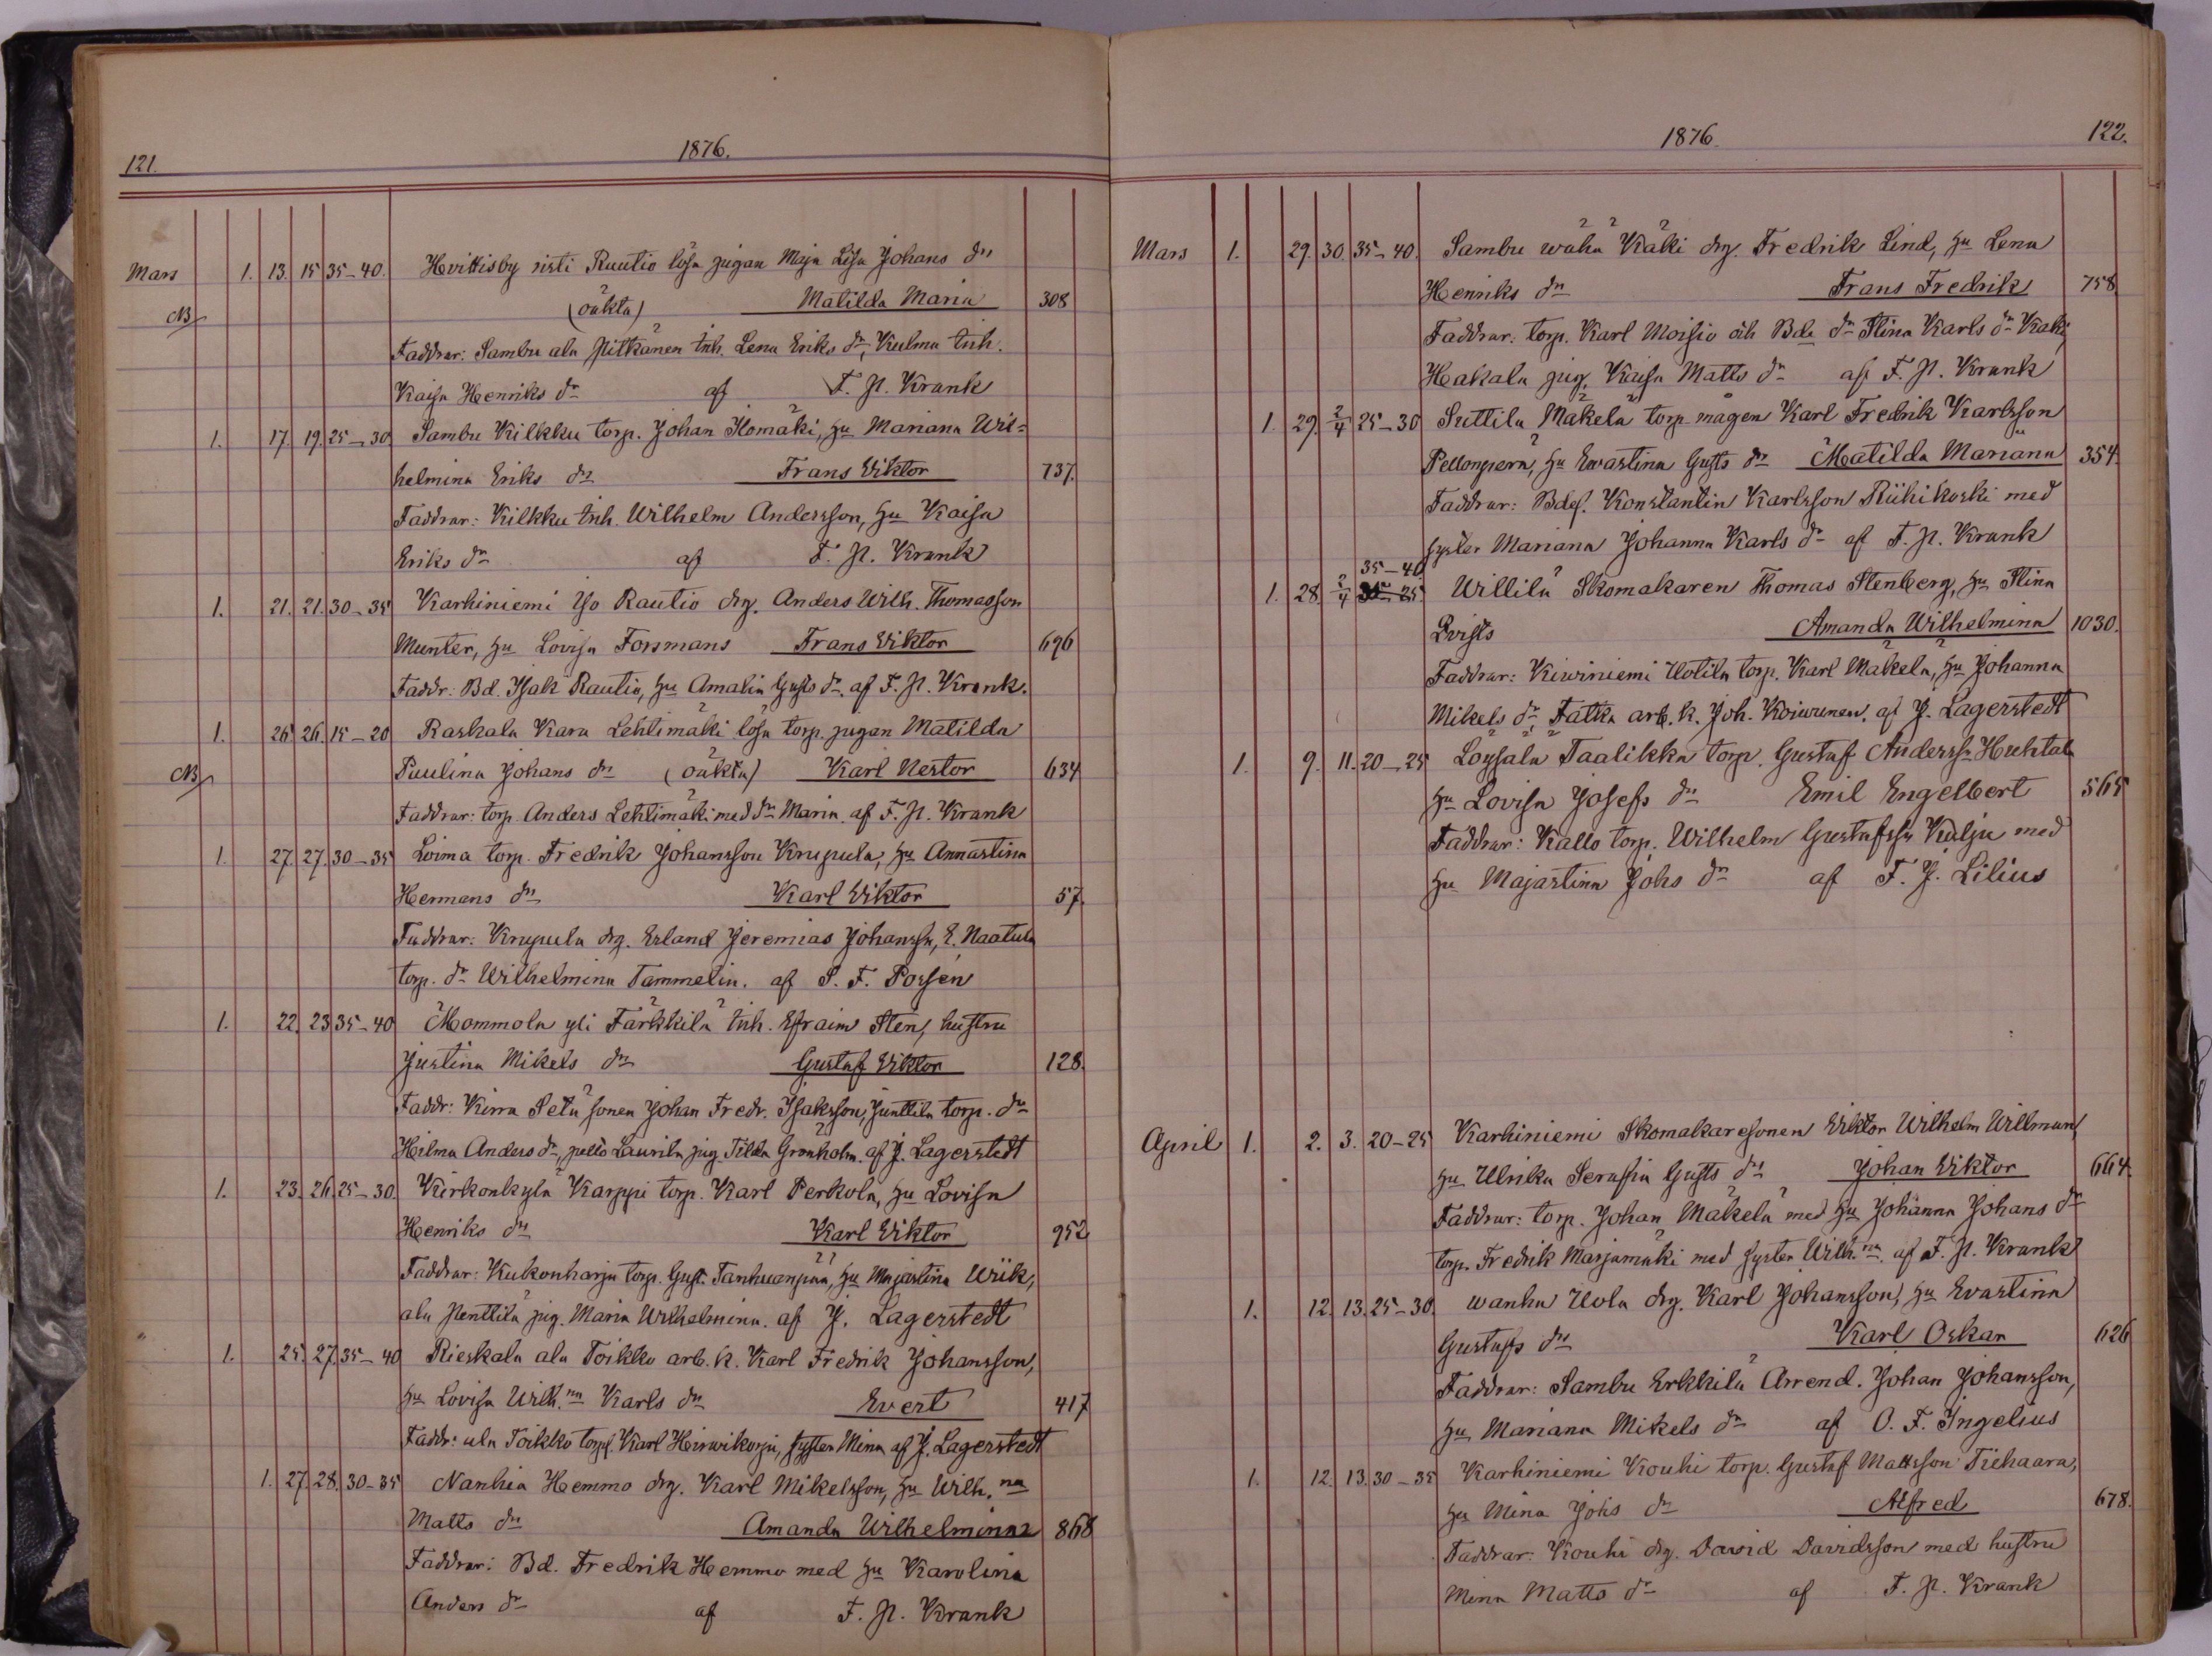 121. 1876.
Mars 1. 13. 15 35-40. Hvittisby risti Rautio lösa pigan Maja Lisa Johans dr
NB (oäkta) Matilda Maria 308
Faddrar: Sambu ala Pitkänen inh. Lena Eriks dr, Kulma inh.
Kaisa Henriks dr af F. N. Krank
1. 17. 19. 25-30 Sambu Kilkku torp. Johan Ilomäki, hu Mariana Wil=
helmina Eriks dr Frans Viktor 737.
Faddrar: Kilkku inh. Wilhelm Andersson, hu Kaisa
Eriks dr af F. N. Krank
1. 21. 21. 30-35 Karhiniemi Iso Rautio drg. Anders Wilh. Thomasson
Munter, hu Lovisa Forsmans Frans Viktor 696
Faddr: Bd. Isak Rautio, hu Amalia Gusts dr. af F. N. Krank.
1. 26 26. 15-20 Raskala Kara Lehtimäki lösa torp. pigan Matilda
NB Paulina Johans dr (oäkta) Karl Nestor 634
Faddrar: torp. Anders Lehtimäki med dr Maria. af F. N. Krank
1. 27. 27. 30-35 Loima torp. Fredrik Johansson Knupula, hu Annastina
Hermans dr Karl Viktor 57.
Faddrar: Knupula drg. Erland Jeremias Johanss:n, E. Naatula
torp. dr Wilhelmina Tammelin. af S. F. Porsén
1. 22. 23 35-40 Mommola yli Färkkilä inh. Efraim Sten, hustru
Justina Mikels dr Gustaf Viktor 128.
Faddr: Kirra Setä sonen Johan Fredr. Isaksson, Junttila torp. dr
Hilma Anders dr, pello Laurila pig. Tilda Grönholm. af J. Lagerstedt
1. 23. 26. 25-30. Kirkonkylä Karppi torp. Karl Perkola, hu Lovisa
Henriks dr Karl Viktor 952
Faddrar: Kukonharja torp. Gust. Tanhuanpää, hu Majastina Wiik,
ala Penttilä pig. Maria Wilhelmina. af J. Lagerstedt
1. 25. 27. 35-40 Rieskala ala Toikko arb. k. Karl Fredrik Johansson,
hu Lovisa Wilh.na Karls dr Evert 417
Faddr: ala Toikko torps. Karl Hirwikorpi, syster Mina af J. Lagerstedt
1. 27. 28. 30-35 Nanhia Hemmo drg. Karl Mikelsson, hu Wilh.na
Matts dr Amanda Wilhelmina 868
Faddrar: Bd. Fredrik Hemmo med hu Karolina
Anders dr af F. N. Krank
1876. 122.
Mars 1. 29. 30. 35-40. Sambu wähä Käki drg. Fredrik Lind, hu Lena
Henriks dr Frans Fredrik 758
Faddrar: torp. Karl Moisio och Bda dr Stina Karls dr Käki
Hakala pig. Kaisa Matts dr af F. N. Krank
1. 29. 2/4 25-30 Suttila Mäkelä torp. mågen Karl Fredrik Karlsson
Pellonperä, hu Ewastina Gusts dr Matilda Mariana 354.
Faddrar: Bdes. Konstantin Karlsson Riihikoski med
syster Mariana Johanna Karls dr af F. N. Krank
35-40
1. 28. 2/4 30-25 Willilä Skomakaren Thomas Stenberg, hu Stina
Qvists Amanda Wilhelmina 1030.
Faddrar: Kiwiniemi Uotila torp. Karl Mäkelä, hu Johanna
Mikels dr, Talka arb. k. Joh. Koiwunen. af J. Lagerstedt
1. 9. 11. 20-25 Loysälä Taalikka torp. Gustaf Anderss:n Huhtala
hu Lovisa Josefs dr Emil Engelbert 565
Faddrar: Kallo torp. Wilhelm Gustafss:n Kulju med
hu Majastina Johs dr af F. J. Lilius
April 1. 2. 3. 20-25 Karhiniemi Skomakaresonen Viktor Wilhelm Willman,
hu Ulrika Serafia Gusts dr Johan Viktor 664.
Faddrar: torp. Johan Mäkelä med hu Johanna Johans dr
torp. Fredrik Marjamäki med syster Wilh.na af F. N. Krank
1. 12. 13. 25-30. wanha Uola drg. Karl Johansson, hu Evastina
Gustafs dr Karl Oskar 626
Faddrar: Sambu Erkkilä Arrend. Johan Johansson,
hu Mariana Mikels dr af O. F. Ingelius
1. 12. 13. 30-35 Karhiniemi Kouhi torp. Gustaf Mattsson Tiehaara,
hu Mina Johs dr Alfred 678.
Faddrar: Kouhi drg. David Davidsson med hustru
Mina Matts dr af F. N. Krank